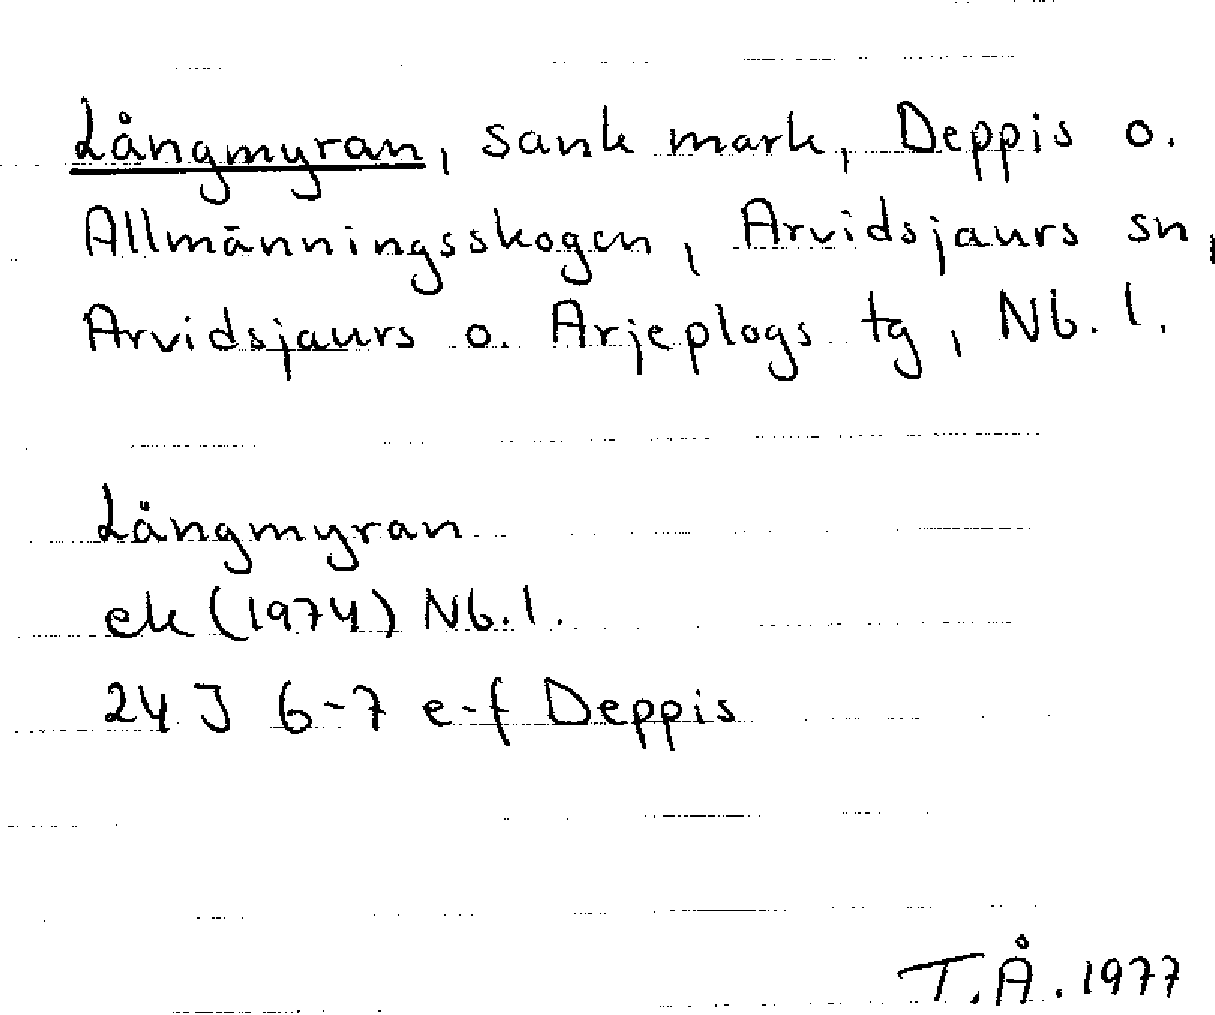 Långmyran, sank mark, Deppis o.
Allmänningsskogen, Arvidsjaurs sn,
Arvidsjaurs o. Arjeplogs tg, Nb. l.
Långmyran
ek (1974) Nb. l.
24 J 6-7 e-f Deppis
T.Å. 1977